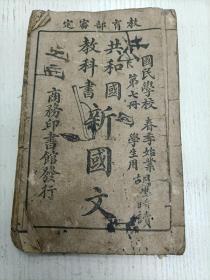 教育部審定
國民學校
春季始業
第七冊
學生用
共和國
教科書
新國文
商務印書館發行